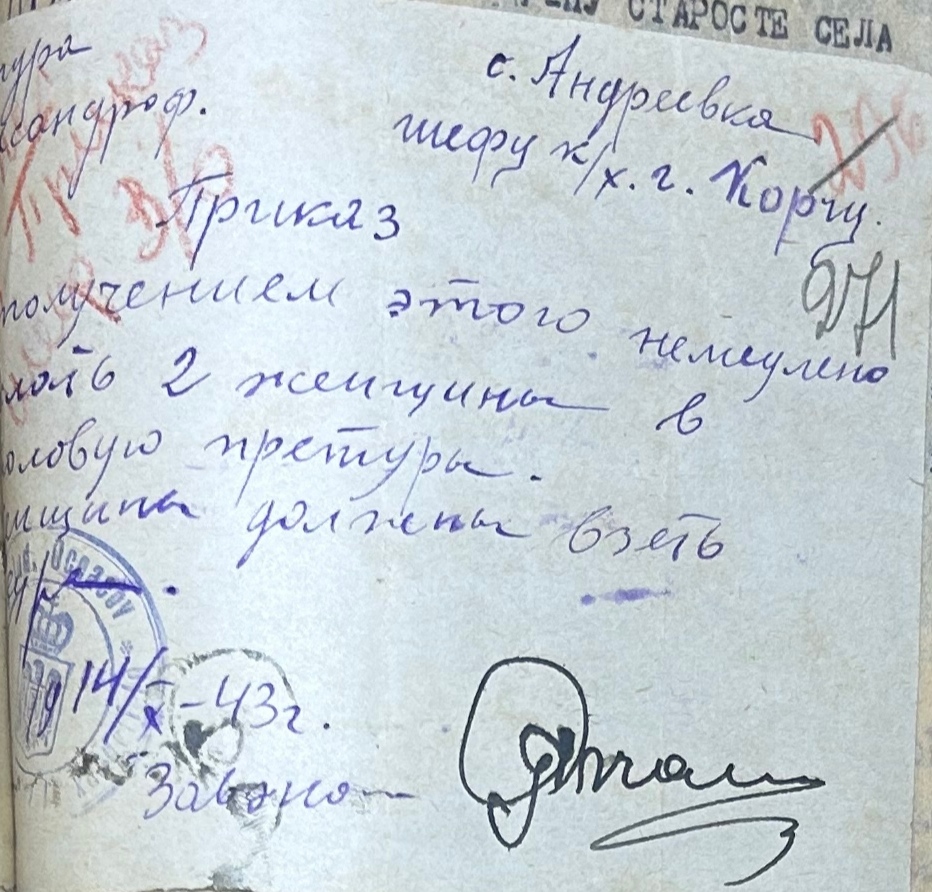 СТАРОСТЕ СЕЛА
тура
сандроф.
с. Андреевка
шефу к/х. г. Корчу.
271
Приказ
получением этого немедлено
лать 2 женщины в
оловую претуры.
нщины должены взеть
14/X-43г.